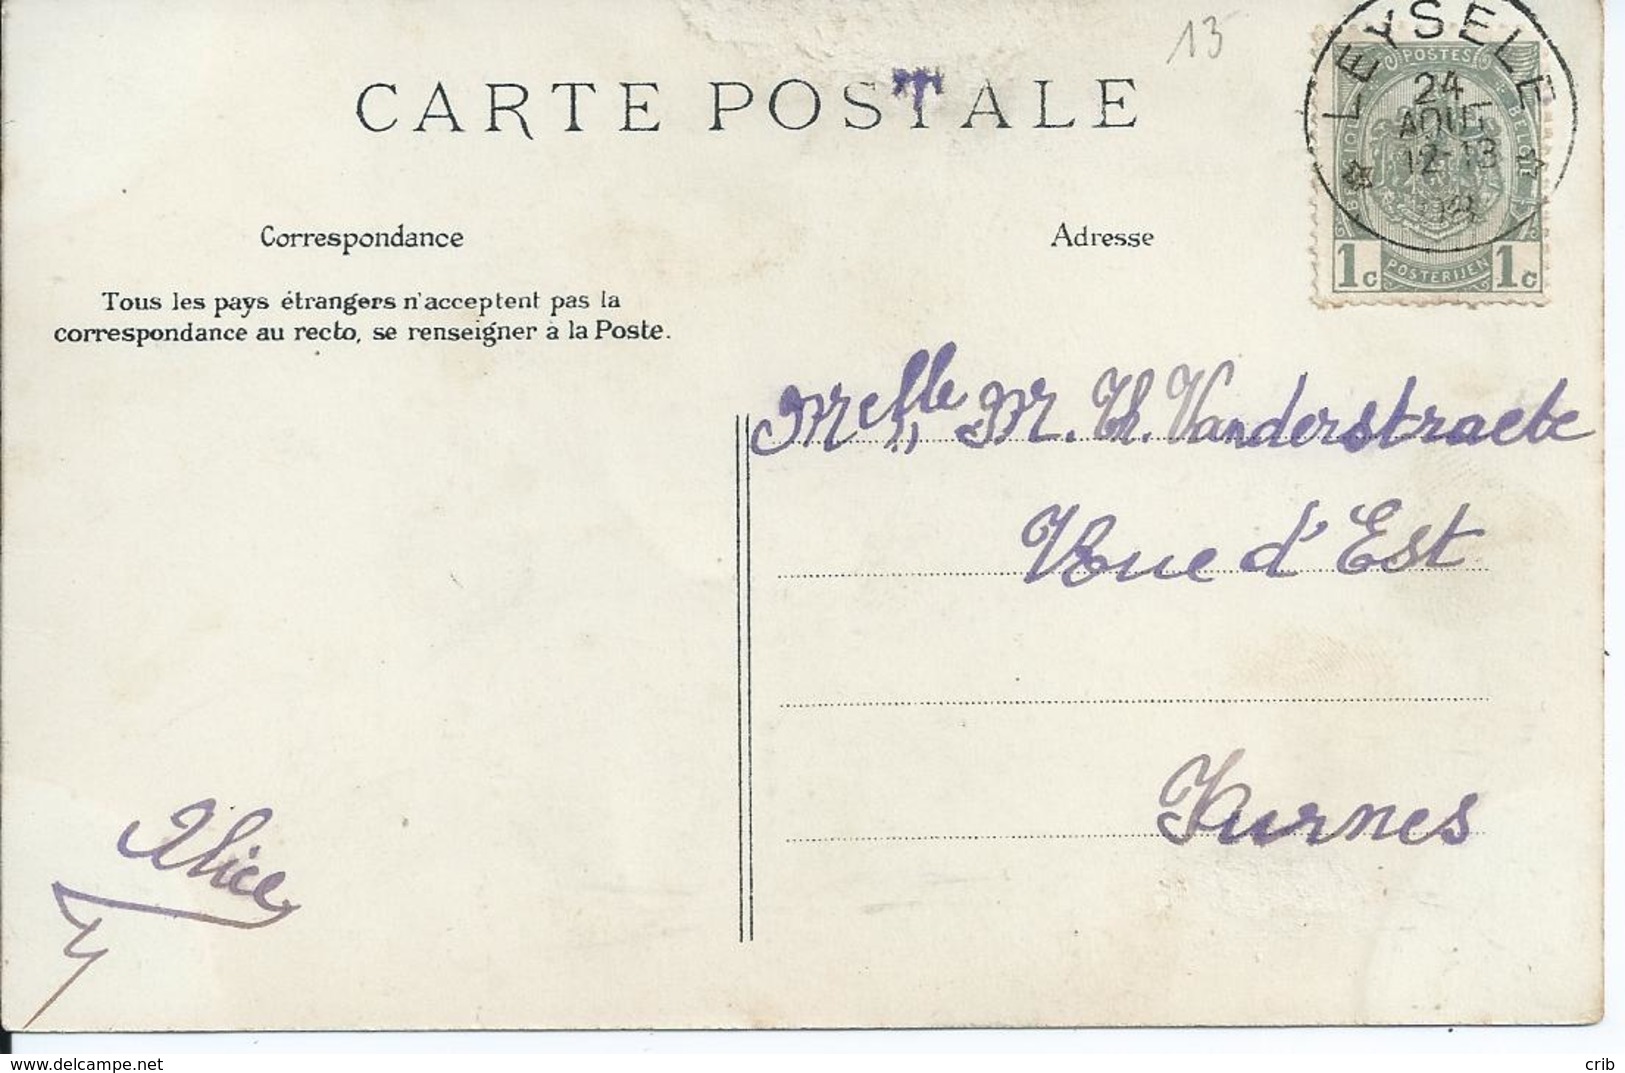 13
CARTE POSTALE
LEYSELE
24
AOUT
12-13
POSTES
BELGIQUE
BELGIË
1c POSTERIJEN 1c
Correspondance
Adresse
Tous les pays étrangers n'acceptent pas la
correspondance au recto, se renseigner à la Poste.
Melle M. Th. Vanderstraete
Rue d'Est
Furnes
Alice
crib